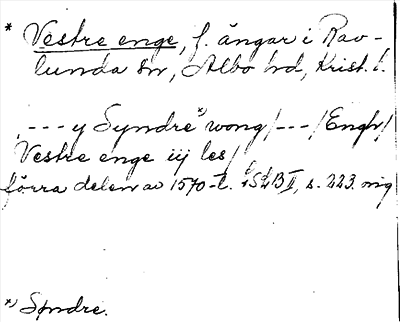 * Vestre enge, f. ängar i Rav-
lunda sn, Albo hd, Krist. l.
, --- y Syndre*) wong / --- / Engh /
Vestre enge iij les /
förra delen av 1570-t. LSLB II, s. 223. mig
*) Spndre.